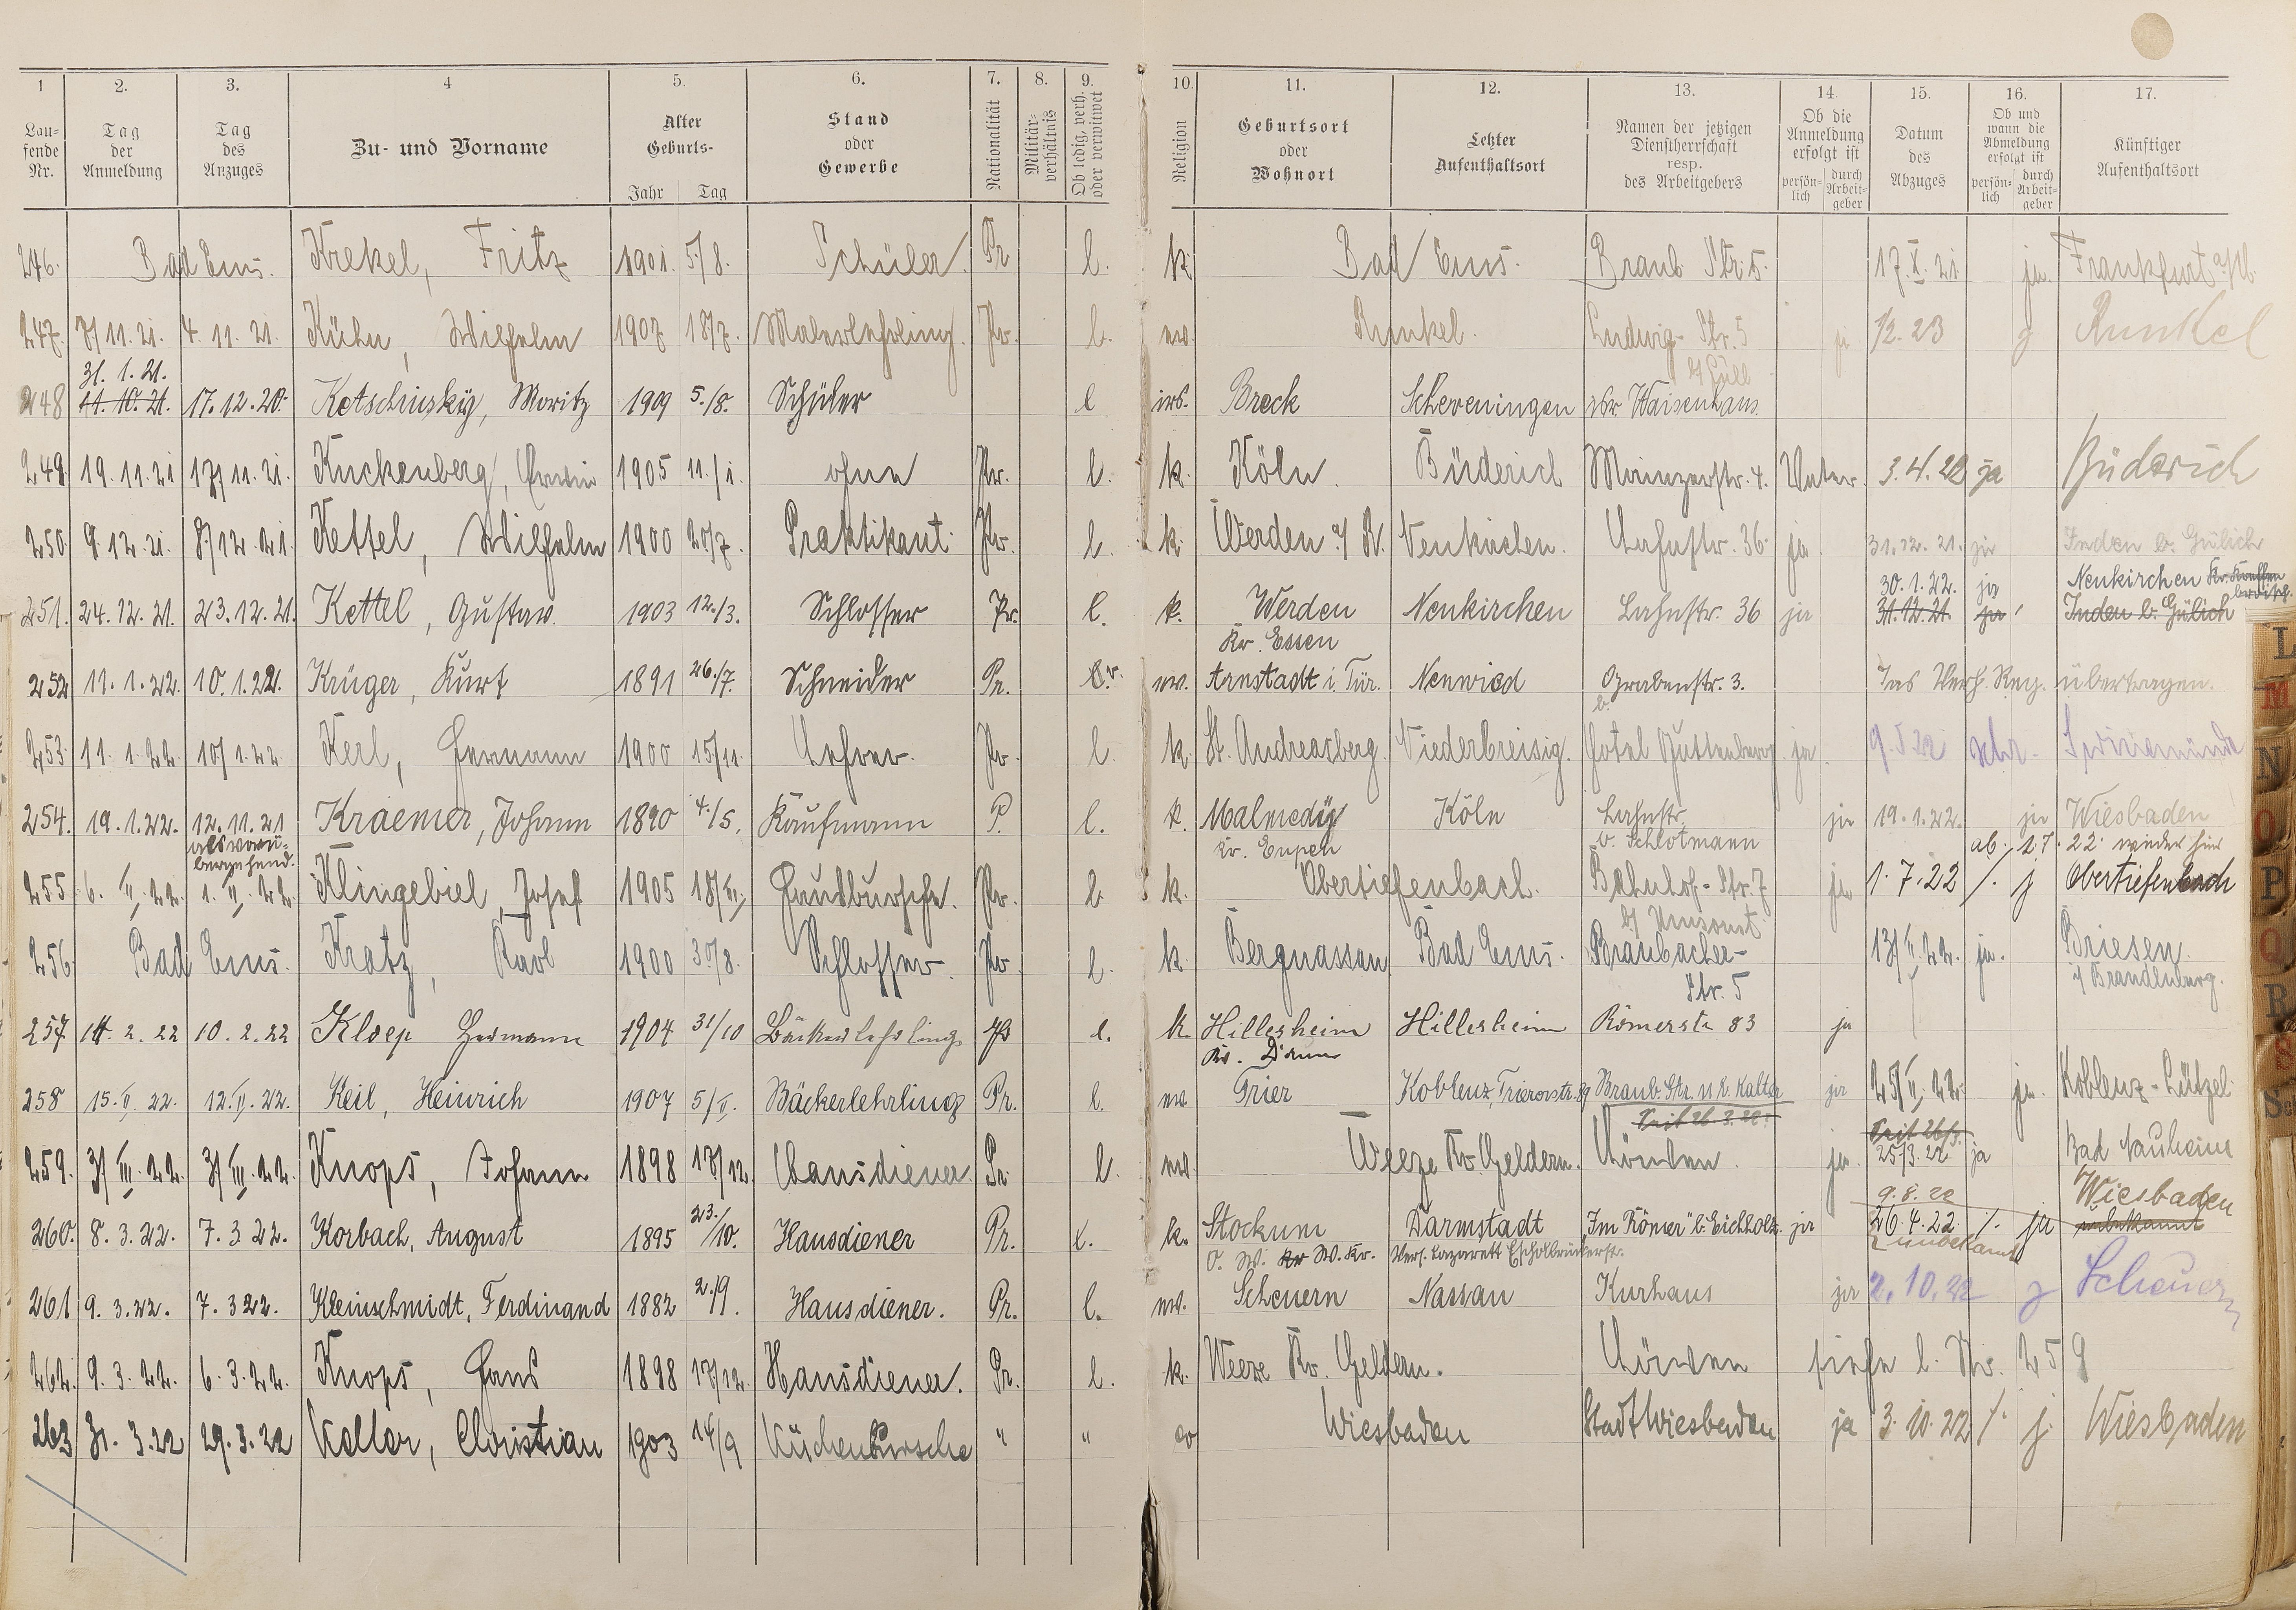 1 2. 3. 4 5. 6. 7. 8. 9. 10. 11. 12. 13. 14. 15. 16. 17.
Lau-
fende
Nr.
Tag
der
Anmeldung
Tag
des
Anzuges
Zu- und Vorname
Alter
Geburts-
Jahr Tag
Stand
oder
Gewerbe
Nationalität
Militär-
verhältnis
Ob ledig, verh.
oder verwitwet
Religion
Geburtsort
oder
Wohnort
Letzter
Aufenthaltsort
Namen der jetzigen
Dienstherrschaft
resp.
des Arbeitgebers
Ob die
Anmeldung
erfolgt ist
persön-
lich
durch
Arbeit-
geber
Datum
des
Abzuges
Ob und
wann die
Abmeldung
erfolgt ist
persön-
lich
durch
Arbeit-
geber
Künftiger
Aufenthaltsort
246. Bad Ems. Krekel, Fritz 1901. 5./8. Schüler. Pr l. k. Bad Ems. Braub. Str. 5. 17.X.21 ja. Frankfurt a/M.
247. 7/11.21. 4.11.21. Kühn, Wilhelm 1907 18/7. Malerlehrling. Pr. l. ev. Runkel. Ludwig-Str. 5 ja 1/2.23 j Runkel
31.1.21.
248 11.10.21. 17.12.20. Kotschinsky, Moritz 1909 5./8. Schüler l isr. Breck Scheveningen isr. Waisenhaus
249. 19.11.21 17/11.21. Kuckenberg, Erwin 1905 11./1. ohne Pr. l. k. Köln Büderich Mainzerstr. 4. Vater 3.4.22 ja Büderich
250. 9.12.21. 8/12.21. Kettel, Wilhelm 1900 20/7. Praktikant. Pr. l. k. Werden a/R. Neukirchen. Lahnstr. 36. ja 31.12.21. ja Inden b. Gülich
30.1.22. ja Neukirchen Kr.
251. 24.12.21. 23.12.21. Kettel, Gustav. 1903 12./3. Schlosser Pr. l. k. Werden Neukirchen Lahnstr. 36 ja 31.12.21. ja Inden b. Gülich
Kr. Essen
252 11.1.22. 10.1.22. Krüger, Kurt 1891 26./7. Schneider Pr. ev. Arnstadt i. Tür. Neuwied Grabenstr. 3. Ins Verh. Reg. übertragen.
253. 11.1.22. 10/1.22 Kerl, Hermann 1900 15/11. Lehrer. Pr. l. k. St. Andreasberg. Niederbreisig. Hotel Guttenberg. ja 9.5.22 schr. Swinemünde
254. 19.1.22. 12.11.21 Kraemer, Johann 1890 4./5. Kaufmann P. l. k. Malmedÿ Köln Lahnstr. ja 19.1.22. ja Wiesbaden
als vorü-
bergehend.
Kr. Eupen v. Schlotmann ab. 1.7.22. wieder hier
255 6.II.22. 1.II.22. Klingebiel, Josef 1905 18/VI. Hausbursche. Pr. l. k. Obertiefenbach. Bahnhof-Str. 7 ja 1.7.22 /. j Obertiefenbach
256. Bad Ems. Kratz, Karl 1900 30/8. Schlosser. Pr l. k. Bergnassau Bad Ems. Braubacher- 13/II.22. ja. Briesen
Str. 5 i/ Brandenburg.
257 14.2.22 10.2.22 Kloep Hermann 1904 31/10 Bäckerlehrling. Pr l. k. Hillesheim Hillesheim Römerstr 83 ja
Kr. Daun
258 15.II.22. 12.II.22. Keil, Heinrich 1907 5/II. Bäckerlehrling Pr. l. ev. Trier Koblenz, Triererstr. 89 Braub. Str. 11 b. Kalter ja 25/II.22. ja. Koblenz-Lützel
seit 26.3.22. seit 26/3.
259. 3/III.22. 3/III.22. Knops, Johann 1898 17/12. Hausdiener. Pr. l. ev. Weeze Kr. Geldern. Löwen. ja. 25/3.22 ja Bad Nauheim
9.8.22 Wiesbaden
260. 8.3.22. 7.3.22. Korbach, August 1895 23./10. Hausdiener Pr. l. k. Stockum Darmstadt „Im Römer“ b. Eichholz. ja 26.4.22. /. ja unbekannt
O. W. Kr W. Kr. Vers. Lazarett Escholbrückerstr. unbekannt
261 9.3.22. 7.3.22. Kleinschmidt, Ferdinand 1882 2./9. Hausdiener. Pr. l. ev. Scheuern Nassau Kurhaus ja 2.10.22 j Scheuern
262. 9.3.22. 6.3.22. Knops, Hans 1898 17/12. Hausdiener. Pr. l. k. Weeze Kr. Geldern. Löwen siehe l. Nr. 259
263 31.3.22 29.3.22 Keller, Christian 1903 14/9 Küchenbursche " " ev Wiesbaden Stadt Wiesbaden ja 3.10.22 /. j. Wiesbaden
L
M
N
O
P
Q
R
S